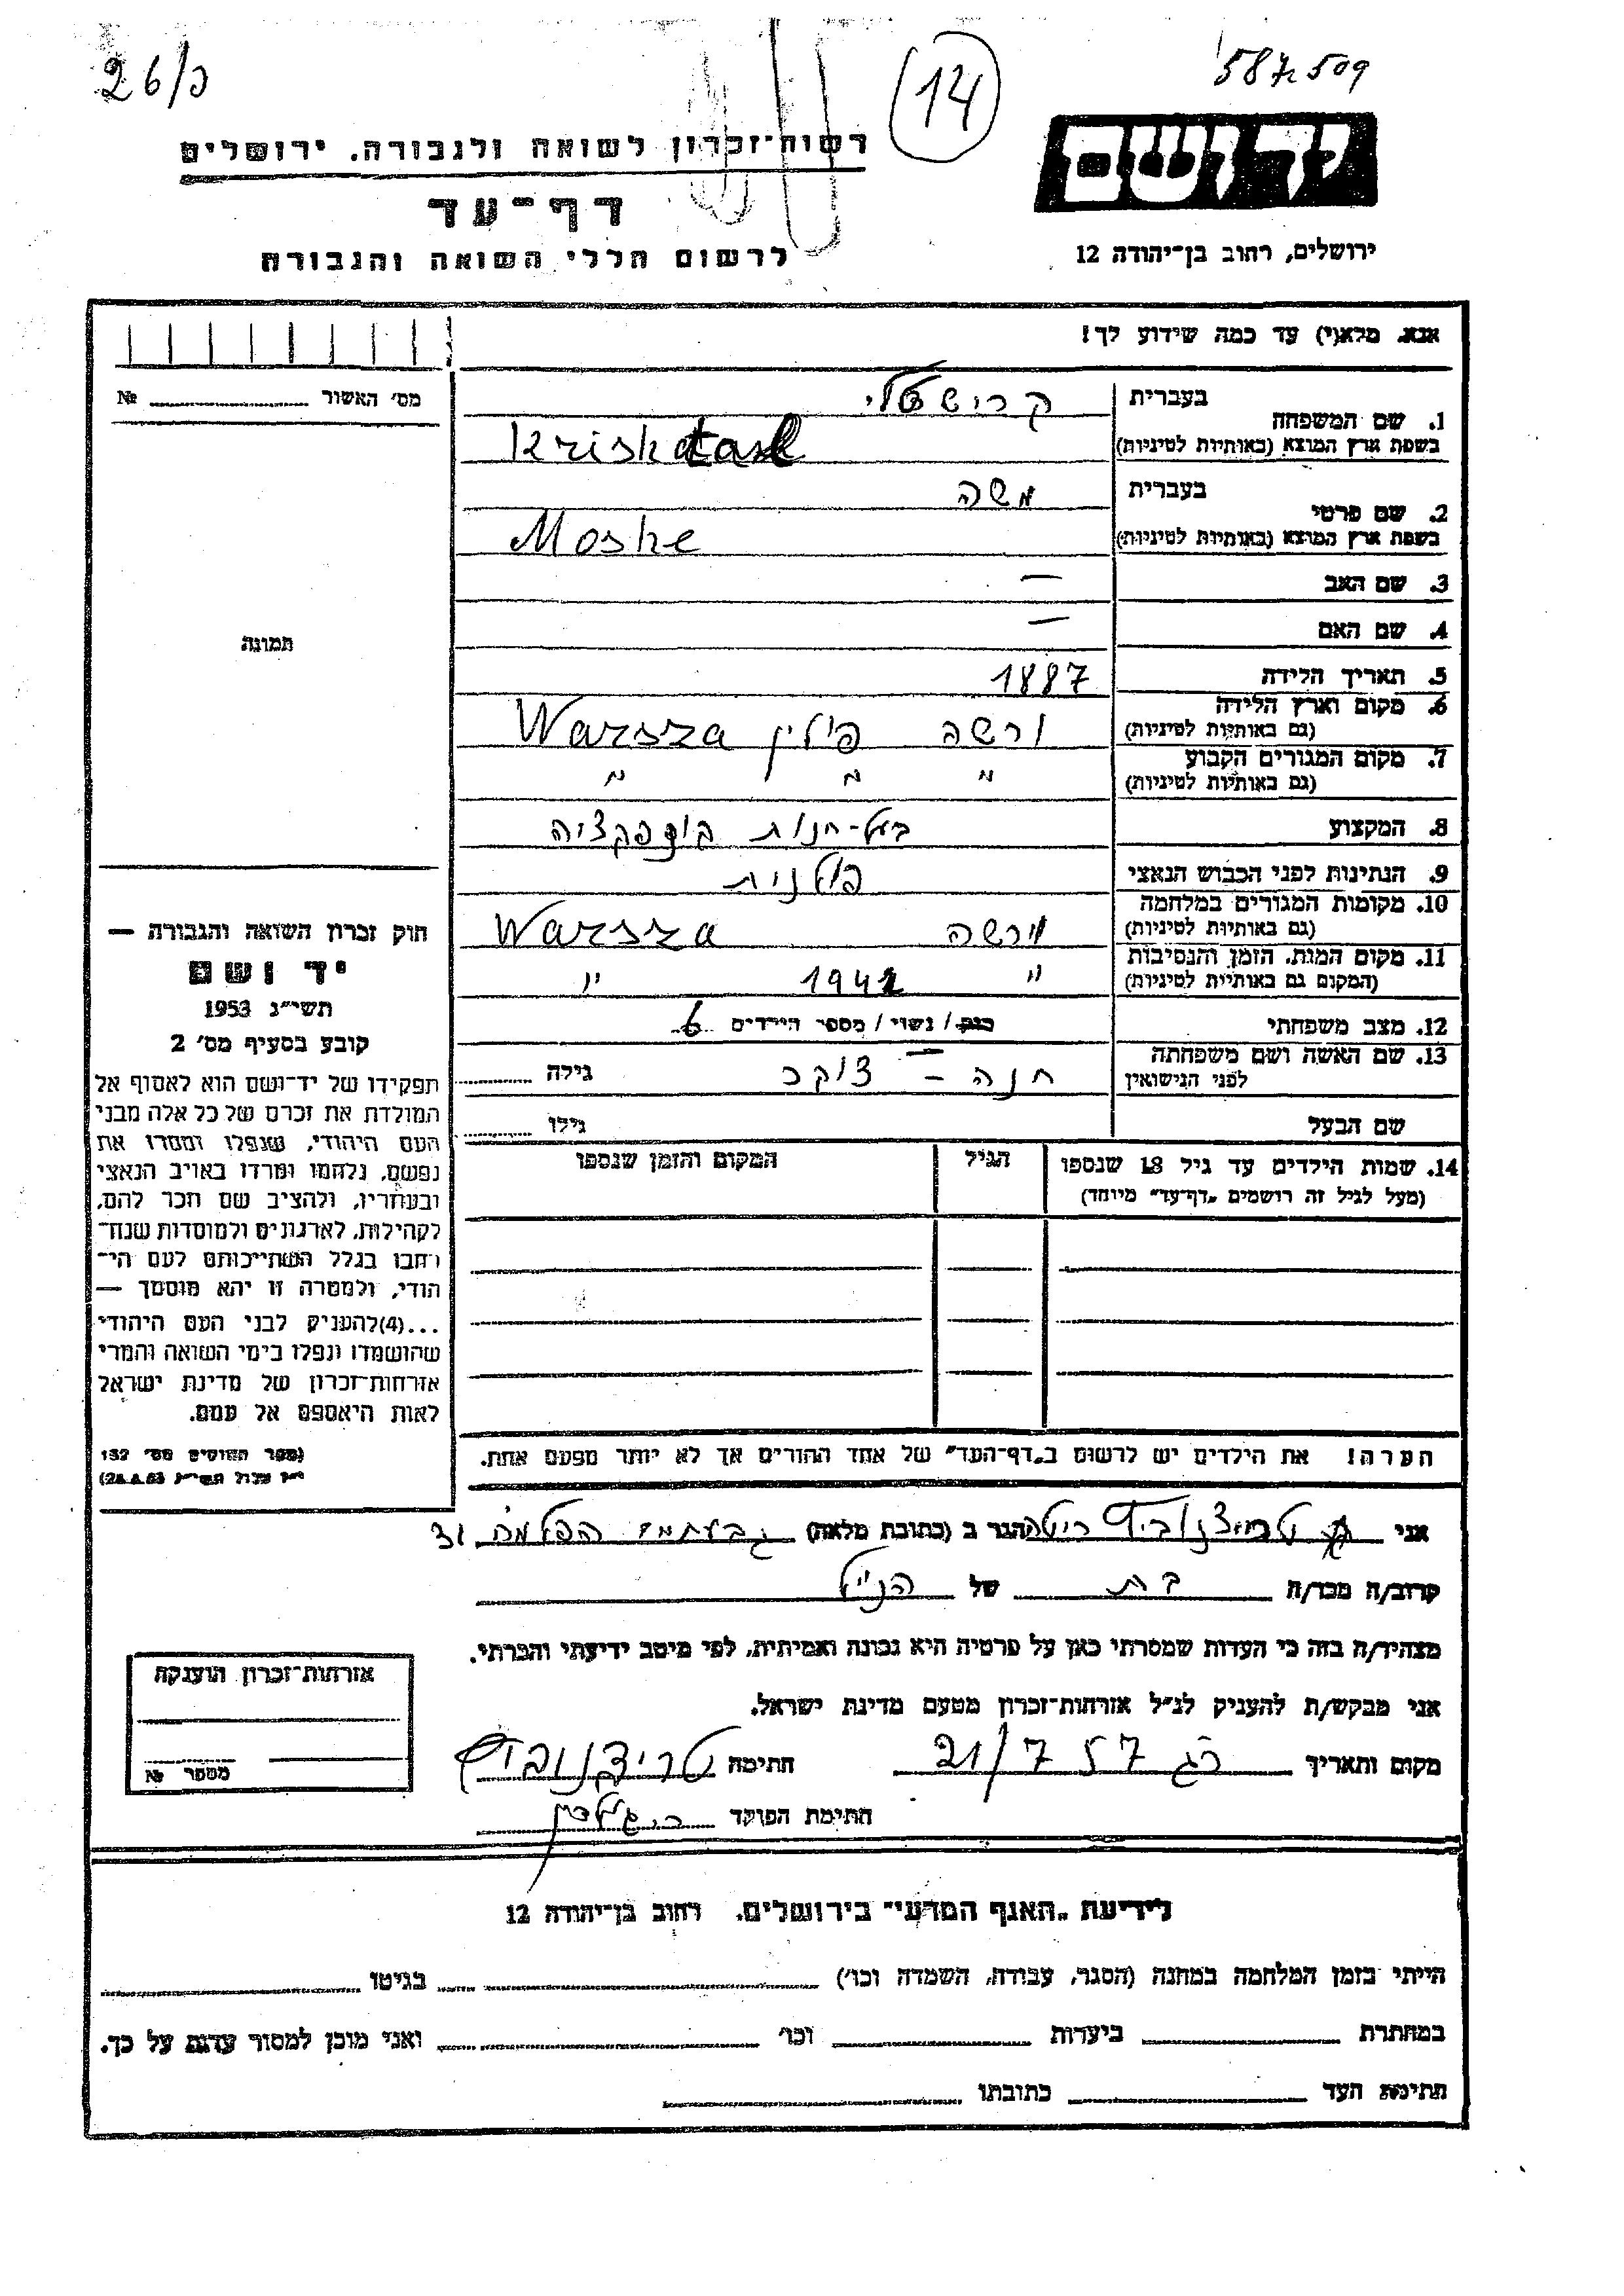 26/כ
14
587509
רשות־זכרון לשואה ולגבורה, ירושלים
יד ושם
דף־עד
לרשום חללי השואה והגבורה
ירושלים, רחוב בן־יהודה 12
אנא, מלא(י) עד כמה שידוע לך!
מס' האשור № 
1. שם המשפחה
בעברית
בשפת ארץ המוצא (באותיות לטיניות)
2. שם פרטי
בעברית משה
בשפת ארץ המוצא (באותיות לטיניות) Moshe
3. שם האב —
4. שם האם —
תמונה
5. תאריך הלידה 1887
6. מקום וארץ הלידה ורשה פולין Warsza
(גם באותיות לטיניות)
7. מקום המגורים הקבוע " " "
(גם באותיות לטיניות)
8. המקצוע בעל-חנות קונפקציה
9. הנתינות לפני הכבוש הנאצי פולנית
10. מקומות המגורים במלחמה ורשה Warsza
(גם באותיות לטיניות)
11. מקום המות, הזמן והנסיבות " 1942 "
(המקום גם באותיות לטיניות)
12. מצב משפחתי רוק/ נשוי/ מספר הילדים 6
13. שם האשה ושם משפחתה חנה — צוקר גילה
לפני הנישואין
שם הבעל גילו
14. שמות הילדים עד גיל 18 שנספו הגיל המקום והזמן שנספו
(מעל לגיל זה רושמים „דף־עד" מיוחד)
הערה! את הילדים יש לרשום ב„דף־העד" של אחד ההורים אך לא יותר מפעם אחת.
חוק זכרון השואה והגבורה —
יד ושם
תשי"ג 1953
קובע בסעיף מס' 2
תפקידו של יד־ושם הוא לאסוף אל
המולדת את זכרם של כל אלה מבני
העם היהודי, שנפלו ומסרו את
נפשם, נלחמו ומרדו באויב הנאצי
ובעוזריו, ולהציב שם וזכר להם,
לקהילות, לארגונים ולמוסדות שנח־
רבו בגלל השתייכותם לעם הי־
הודי, ולמטרה זו יהא מוסמך —
...(4)להעניק לבני העם היהודי
שהושמדו ונפלו בימי השואה והמרי
אזרחות־זכרון של מדינת ישראל
לאות היאספם אל עמם.
(ספר החוקים מס' 132
י"ז אלול תשי"ג 28.8.53)
אני הגר ב (כתובת מלאה)
קרוב/ה מכר/ה בת של הנ"ל
מצהיר/ה בזה כי העדות שמסרתי כאן על פרטיה היא נכונה ואמיתית, לפי מיטב ידיעתי והכרתי.
אני מבקש/ת להעניק לנ"ל אזרחות־זכרון מטעם מדינת ישראל.
מקום ותאריך רג 21/7 57 חתימה
חתימת הפוקד
אזרחות־זכרון הוענקה
מספר №
לידיעת „האגף המדעי" בירושלים, רחוב בן־יהודה 12
הייתי בזמן המלחמה במחנה (הסגר, עבודה, השמדה וכו') בגיטו
במחתרת ביערות וכו' ואני מוכן למסור עדות על כך.
חתימת העד כתובתו